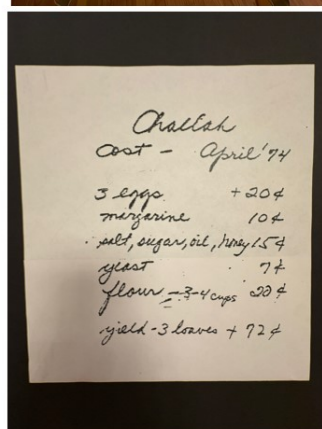 Challah
Cost - April '74
3 eggs + 20¢
margarine 10¢
salt, sugar, oil, honey 15¢
yeast 7¢
flour - 3-4 cups 20¢
yield - 3 loaves + 72¢